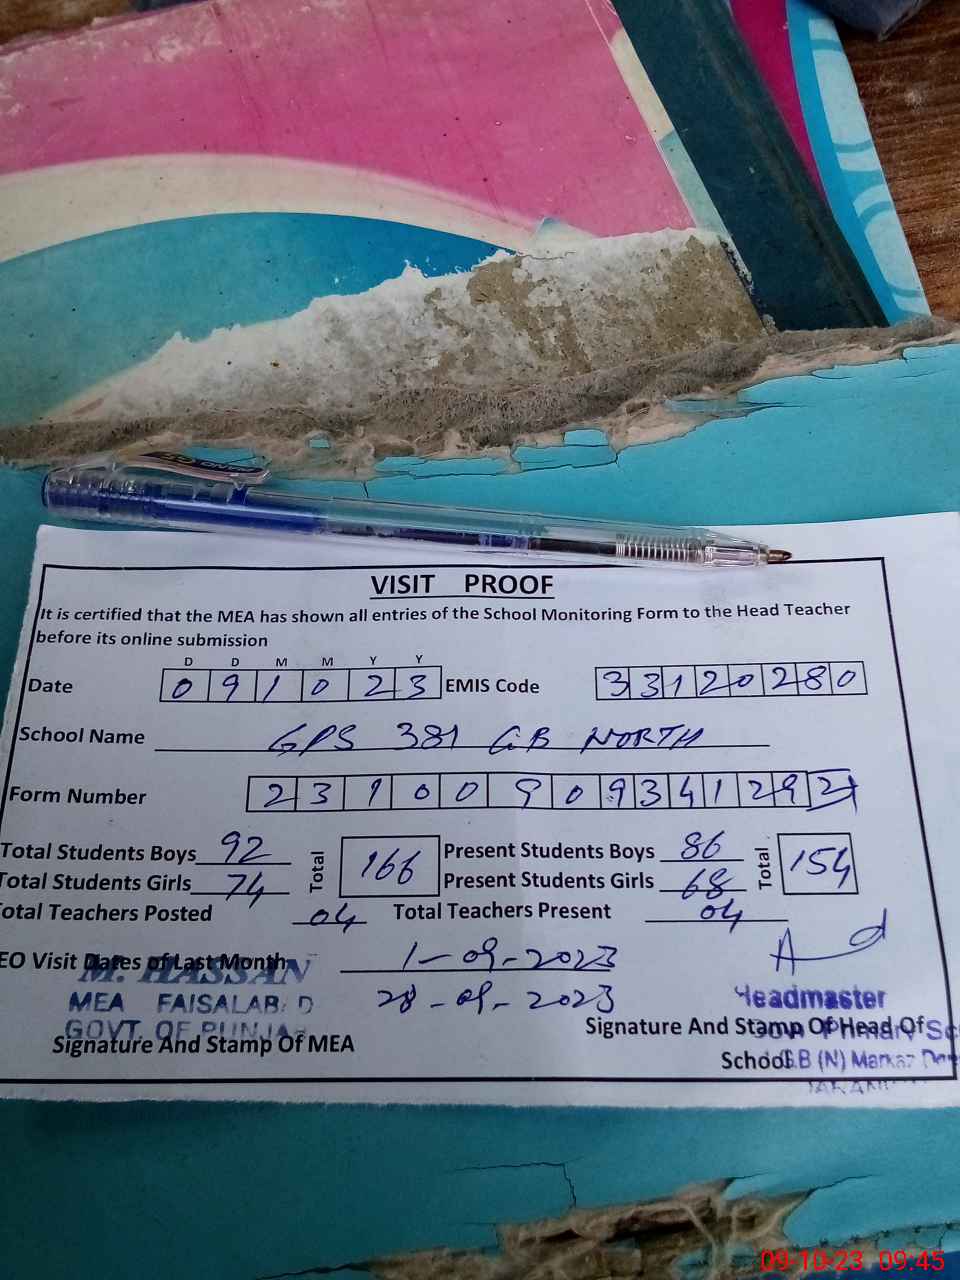 VISIT PROOF
It is certified that the MEA has shown all entries of the School Monitoring Form to the Head Teacher
before its online submission
D D M M Y Y
Date 0 9 1 0 2 3 EMIS Code 3 3 1 2 0 2 8 0
School Name GPS 381 GB NORTH
Form Number 2 3 1 0 0 9 0 9 3 4 1 2 9 2
Total Students Boys 92 Total 166 Present Students Boys 86 Total 154
Total Students Girls 74 Present Students Girls 68
otal Teachers Posted 04 Total Teachers Present 04
EO Visit Dates of Last Month 1-09-2023
28-09-2023
M. HASSAN
MEA FAISALAB D
GOVT. OF PUNJA
Signature And Stamp Of MEA
Headmaster
Signature And Stamp Of Head Of
Primary Sc
School
G.B (N) Markaz
09-10-23 09:45